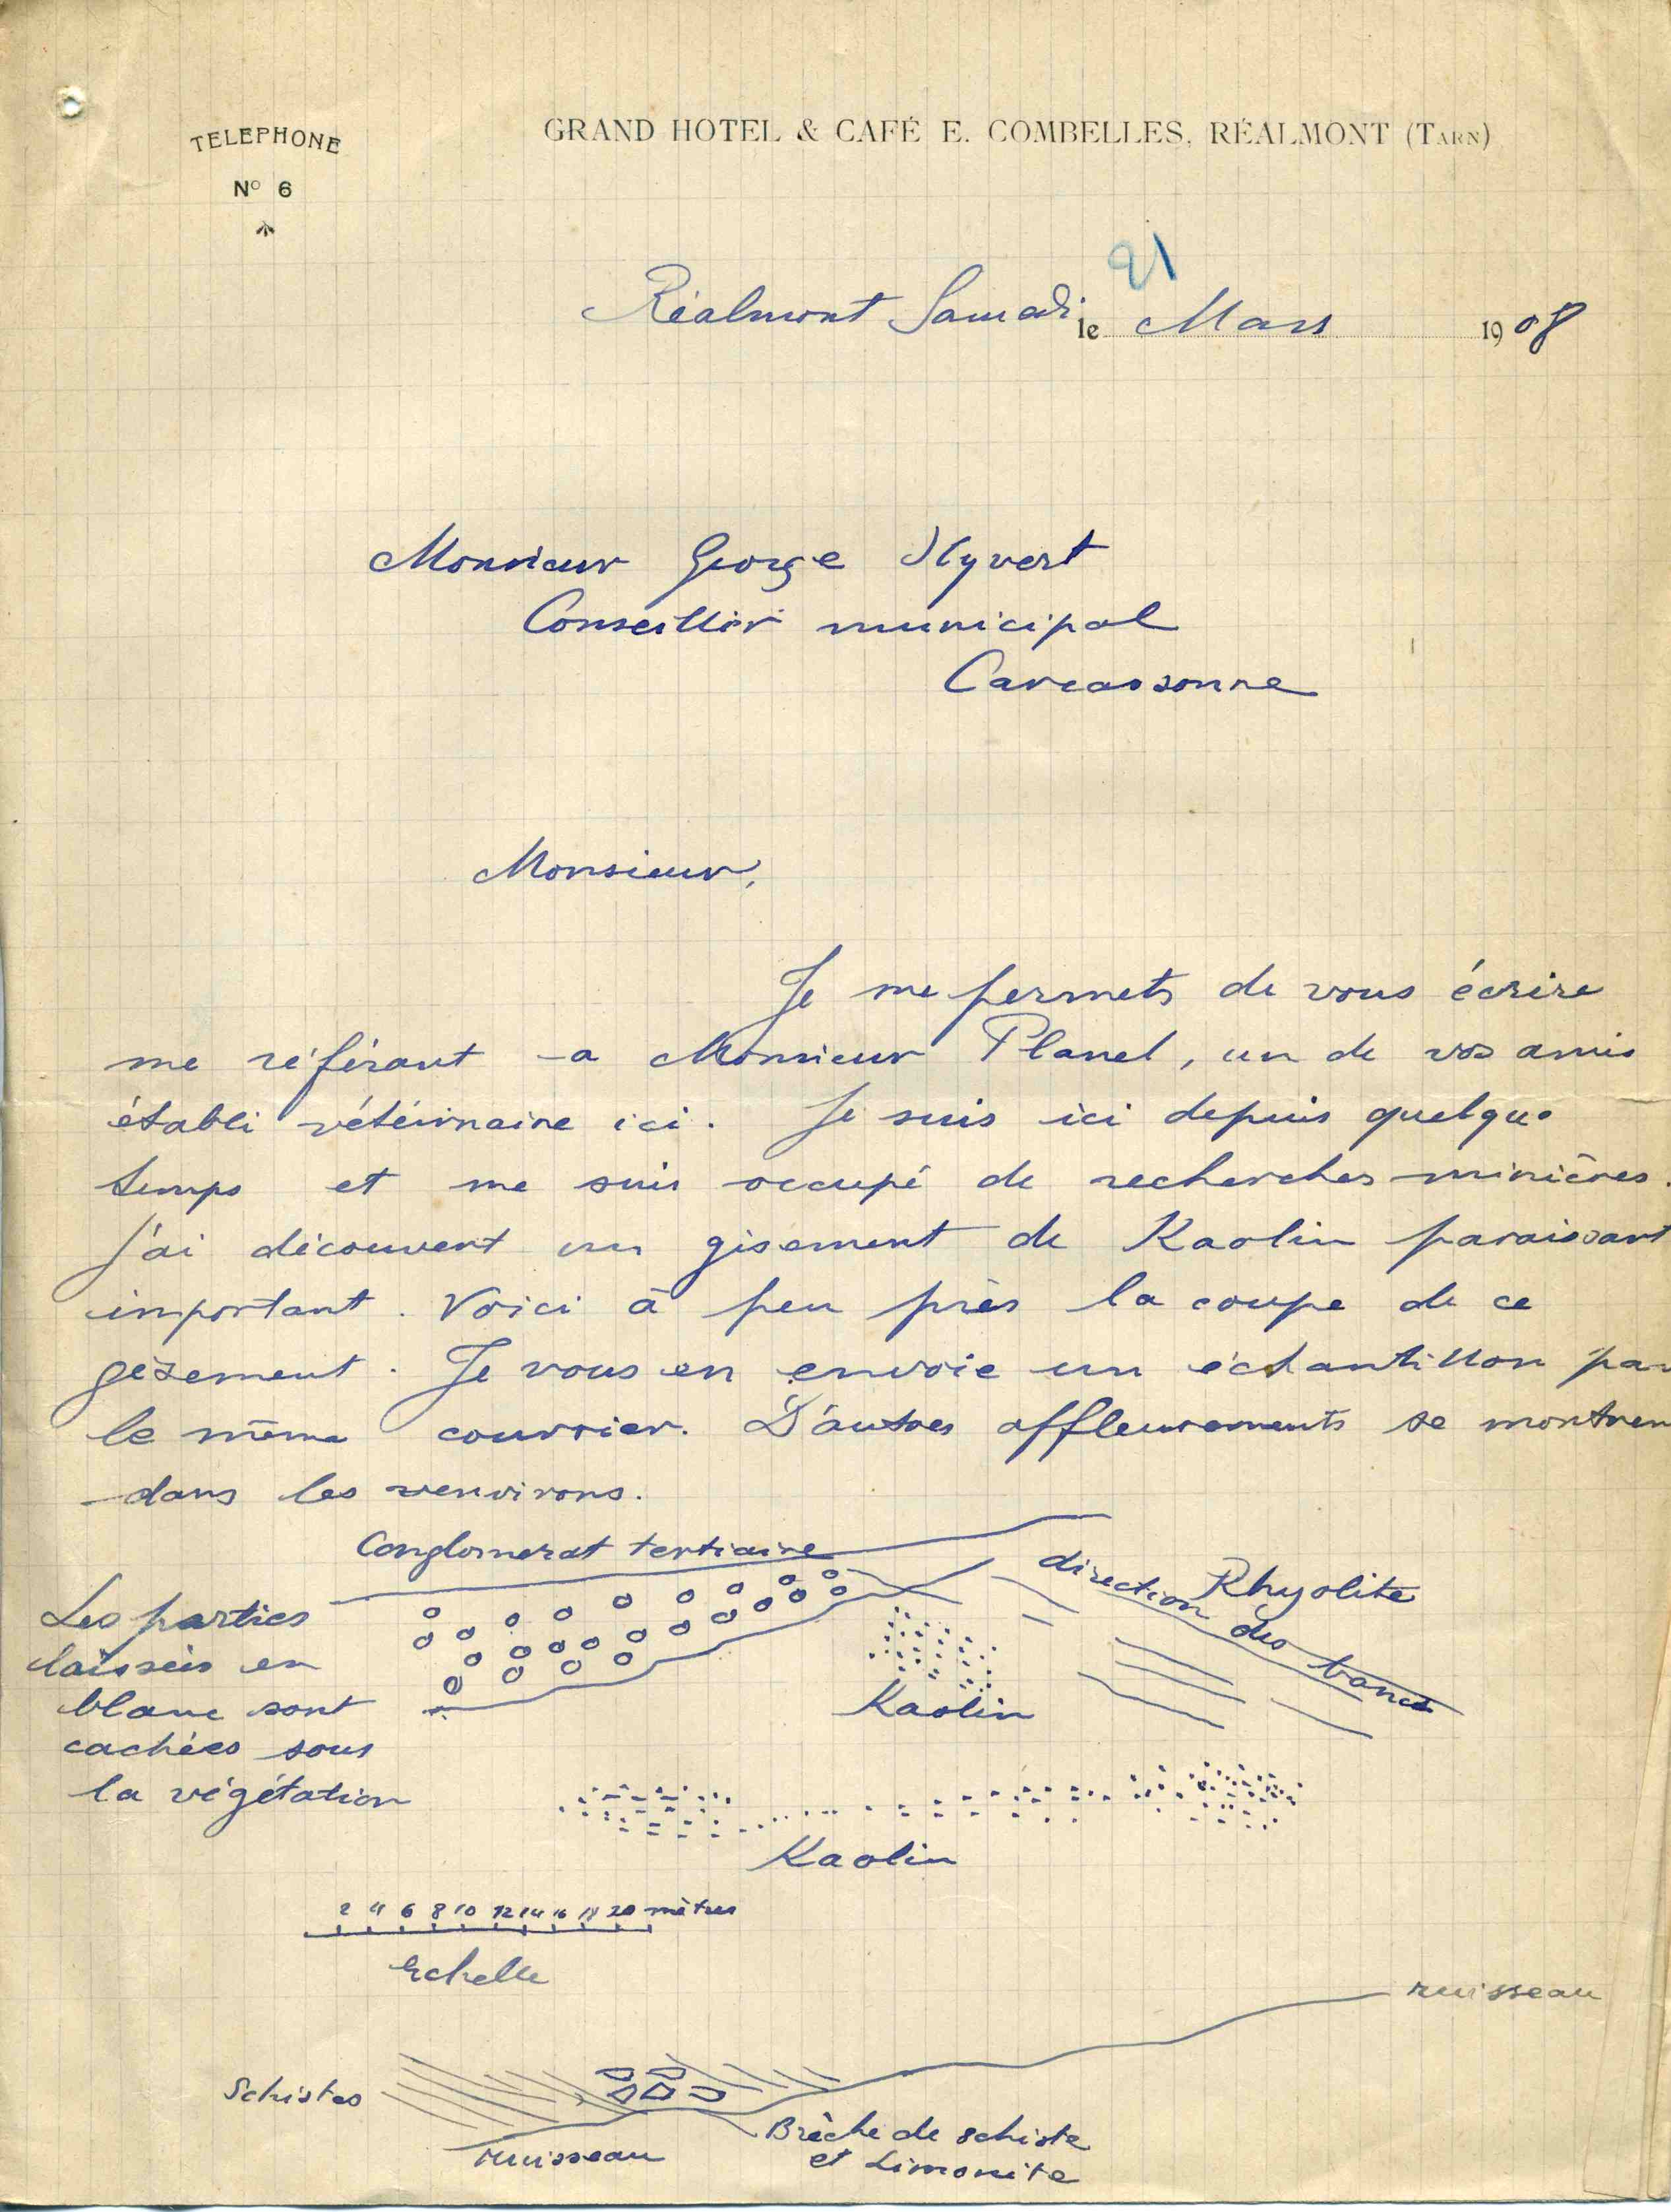 TELEPHONE
Nº 6
GRAND HOTEL & CAFÉ E. COMBELLES, RÉALMONT (TARN)
21
Réalmont Samedi le Mars 1908
Monsieur George Hyvert
Conseiller municipal
Carcassonne
Monsieur,
Je me permets de vous écrire
me référant a Monsieur Planel, un de vos amis
établi vétérinaire ici. Je suis ici depuis quelque
temps et me suis occupé de recherches minières.
J'ai découvert un gisement de Kaolin paraissant
important. Voici à peu près la coupe de ce
gisement. Je vous en envoie un échantillon par
le même courrier. D'autres affleurements se montren
dans les environs.
Conglomerat tertiaire
direction des bancs
Rhyolite
Les parties
laissées en
blanc sont
cachées sous
la végétation
Kaolin
Kaolin
2 4 6 8 10 12 14 16 18 20 mètres
Echelle
ruisseau
Schistes
ruisseau
Brèche de schiste
et Limonite